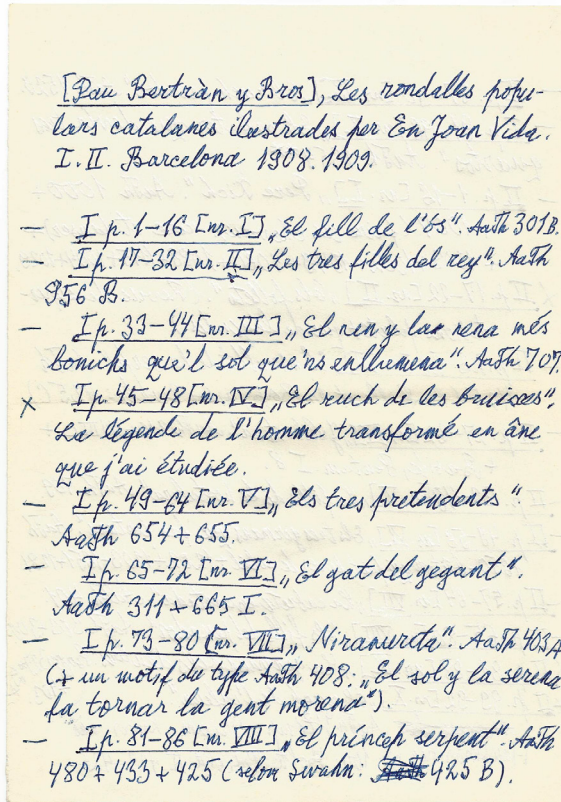 [Pau Bertràn y Bros], Les rondalles popu-
lars catalanes ilustrades per En Joan Vila.
I. II. Barcelona 1908. 1909.
— I p. 1-16 [nr. I] „El fill de l'ós“. AaTh 301B.
— I p. 17-32 [nr. II] „Les tres filles del rey“. AaTh
956 B.
— I p. 33-44 [nr. III] „El nen y la nena més
bonichs que'l sol que'ns enllumena“. AaTh 707.
x I p. 45-48 [nr. IV] „El ruch de les bruixes“.
La légende de l'homme transformé en âne
que j'ai étudiée.
— I p. 49-64 [nr. V] „Els tres pretendents“.
AaTh 654+655.
— I p. 65-72 [nr. VI] „El gat del gegant“.
AaTh 311+665 I.
— I p. 73-80 [nr. VII] „ AaTh 403A
(+ un motif du type AaTh 408: „El sol y la serena
fa tornar la gent morena“).
— I p. 81-86 [nr. VIII] „El príncep serpent“. AaTh
480+433+425 (selon Swahn: 425 B).